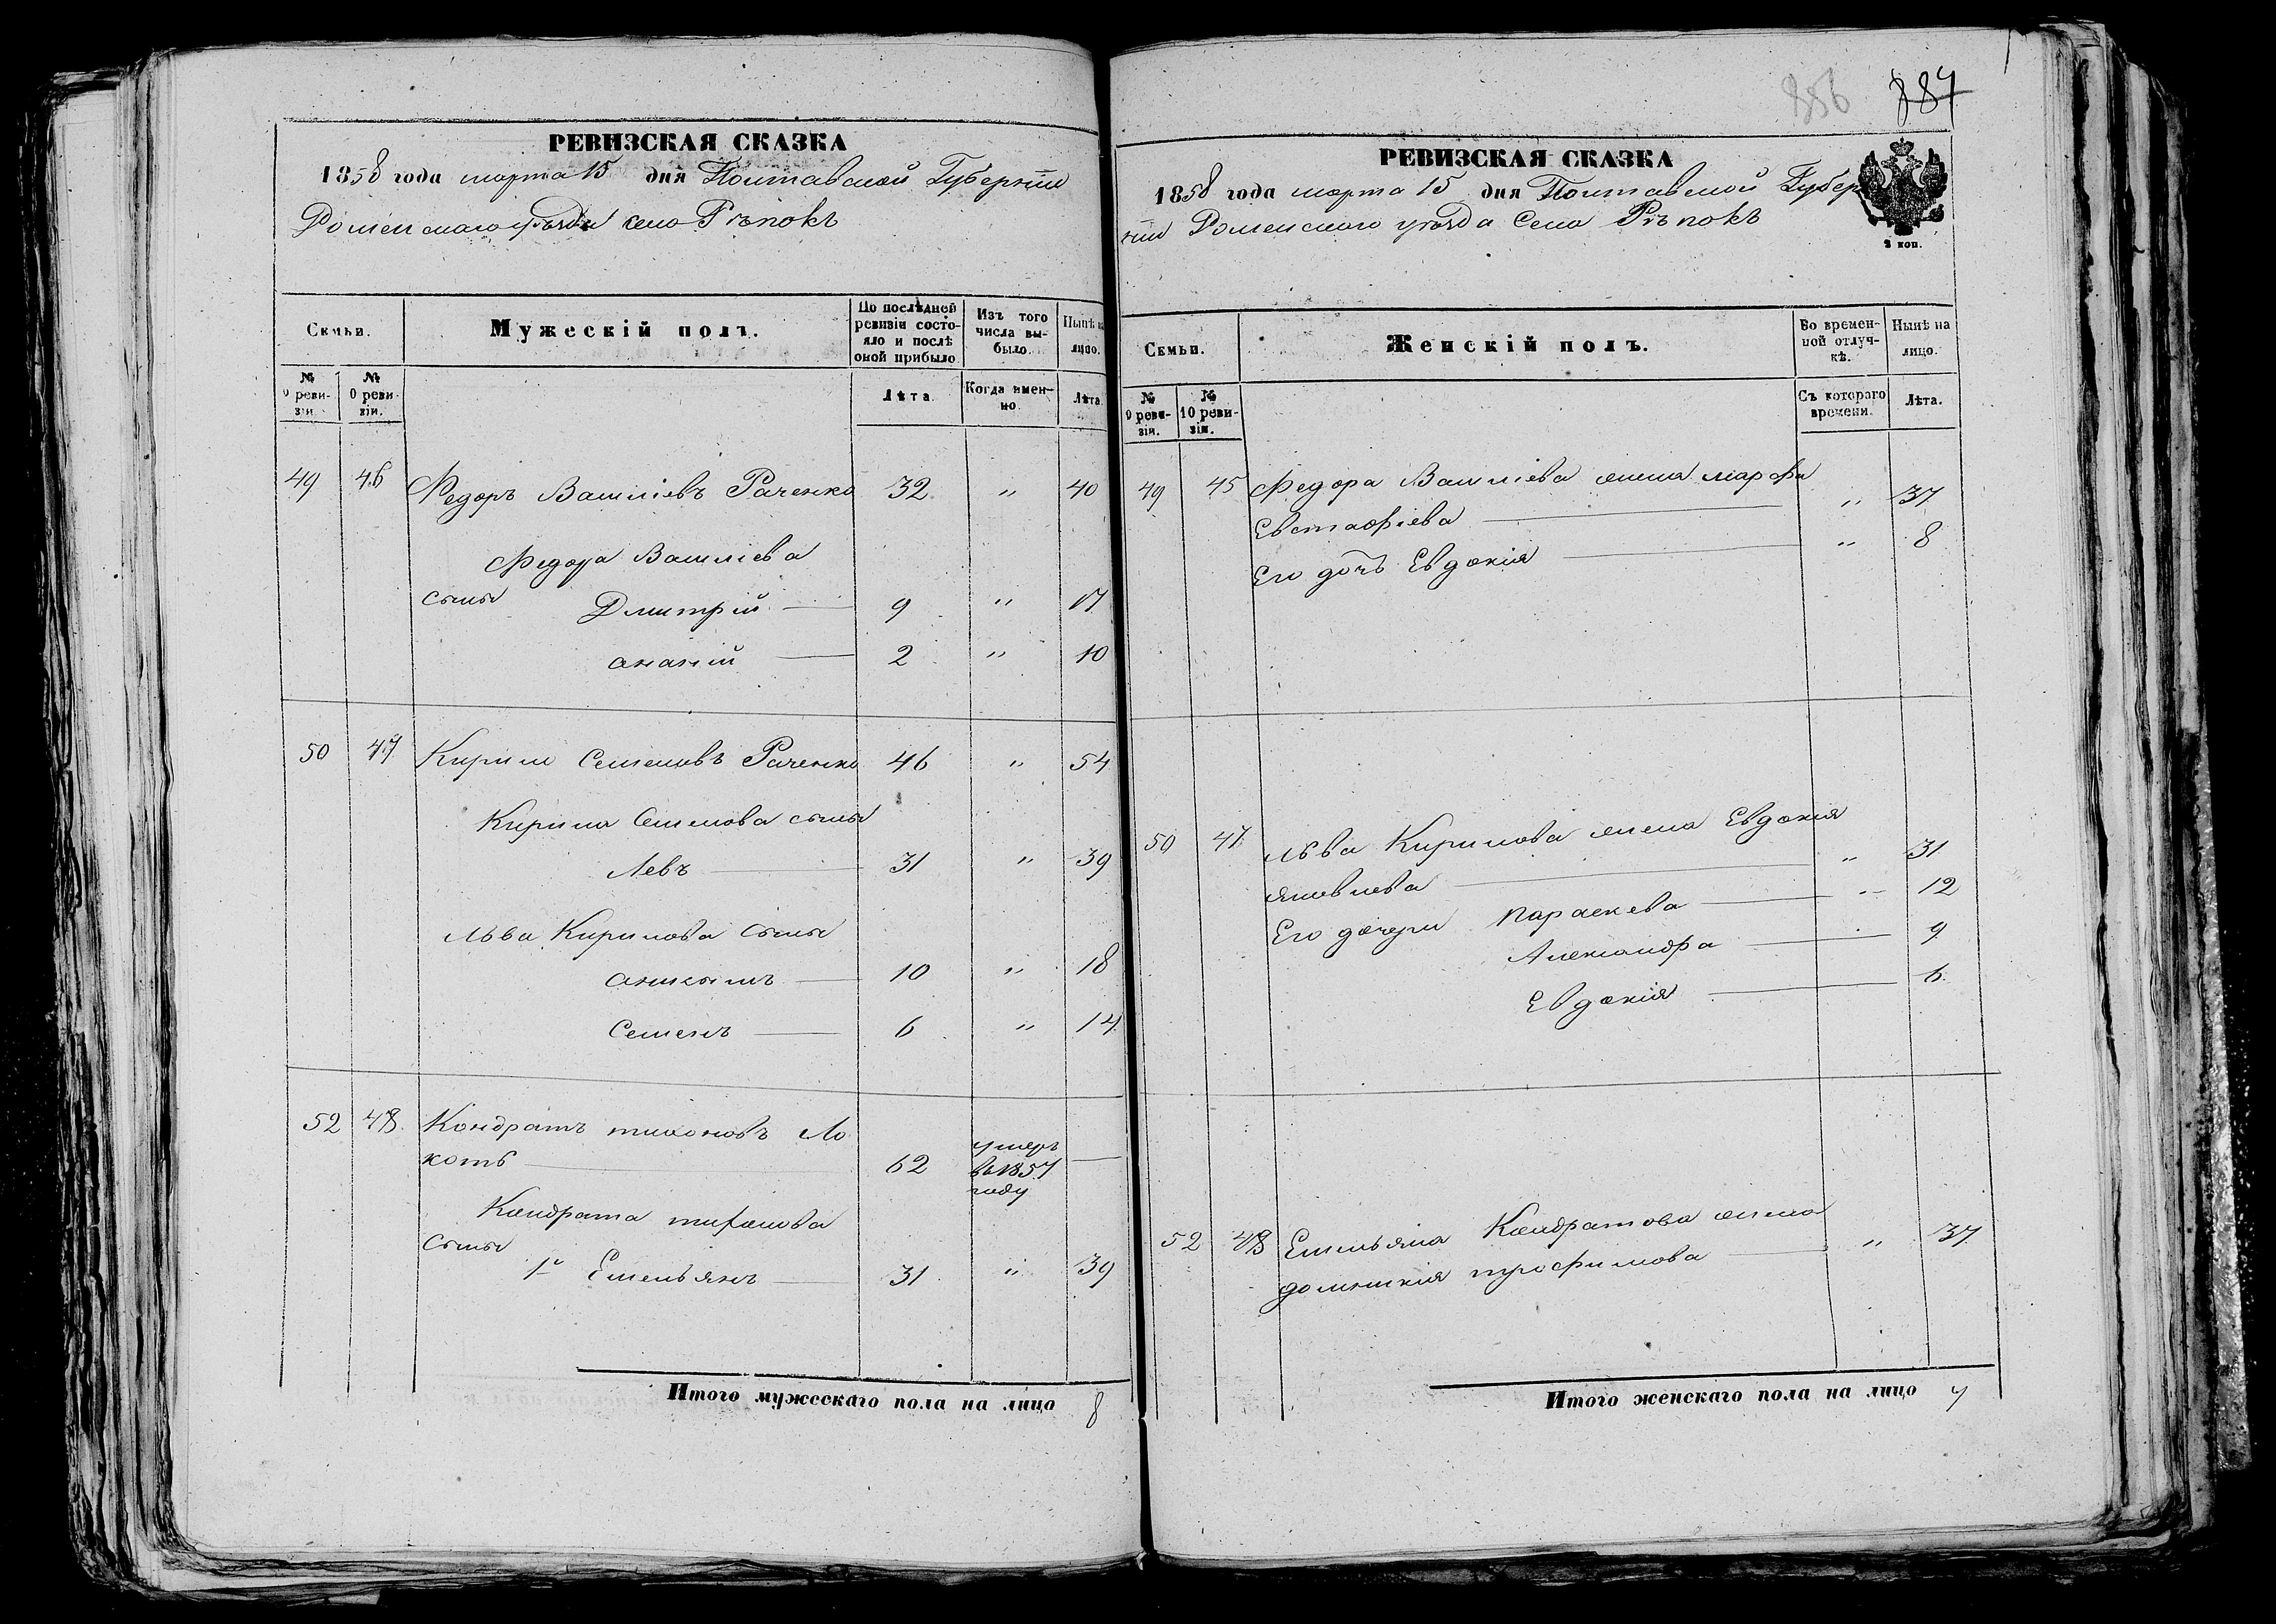 856 887
РЕВИЗСКАЯ СКАЗКА
1858 года марта 15 дня Полтавской Губерніи
Роменского уѣзда село Рѣпокъ
Семьи.
Мужескій полъ.
По послѣдней ревизіи состояло и послѣ оной прибыло
Изъ того числа выбыло.
Нынѣ на лицо.
№ 9 ревизіи.
№ 0 ревизіи.
Лѣта.
Когда именно.
Лѣта.
49 46 Федоръ Василіевъ Раченко 32 " 40
Федора Василіева
сыны Дмитрій 9 " 17
ананій 2 " 10
50 47 Кирило Семеновъ Раченко 46 " 54
Кирила Семенова сыны
Левъ 31 " 39
Льва Кирилова сыны
10 " 18
Семенъ 6 " 14
52 48 Кондратъ тихоновъ Ло
коть 62 умеръ в 1857 году —
Кондрата тихонова
сыны
1й Емельянъ 31 " 39
Итого мужескаго пола на лицо 8
РЕВИЗСКАЯ СКАЗКА
1858 года марта 15 дня Полтавской Губер
ніи Роменского уѣзда Села Рѣпокъ
2 коп.
Семьи.
Женскій полъ.
Во временной отлучкѣ.
Нынѣ на лицо.
№ 9 ревизіи.
№ 10 ревизіи.
Съ котораго времени.
Лѣта.
49 45 Федора Василіева жена марфа
Евстафіева " 37
Его дочь Евдокія " 8
50 47 Льва Кирилова жена Евдокія
яковлева " 31
Его дочери Параскева " 12
Александра " 9
Евдокія 6
52 48 Емельяна Кондратова жена
домникія трофимова " 37
Итого женскаго пола на лицо 7